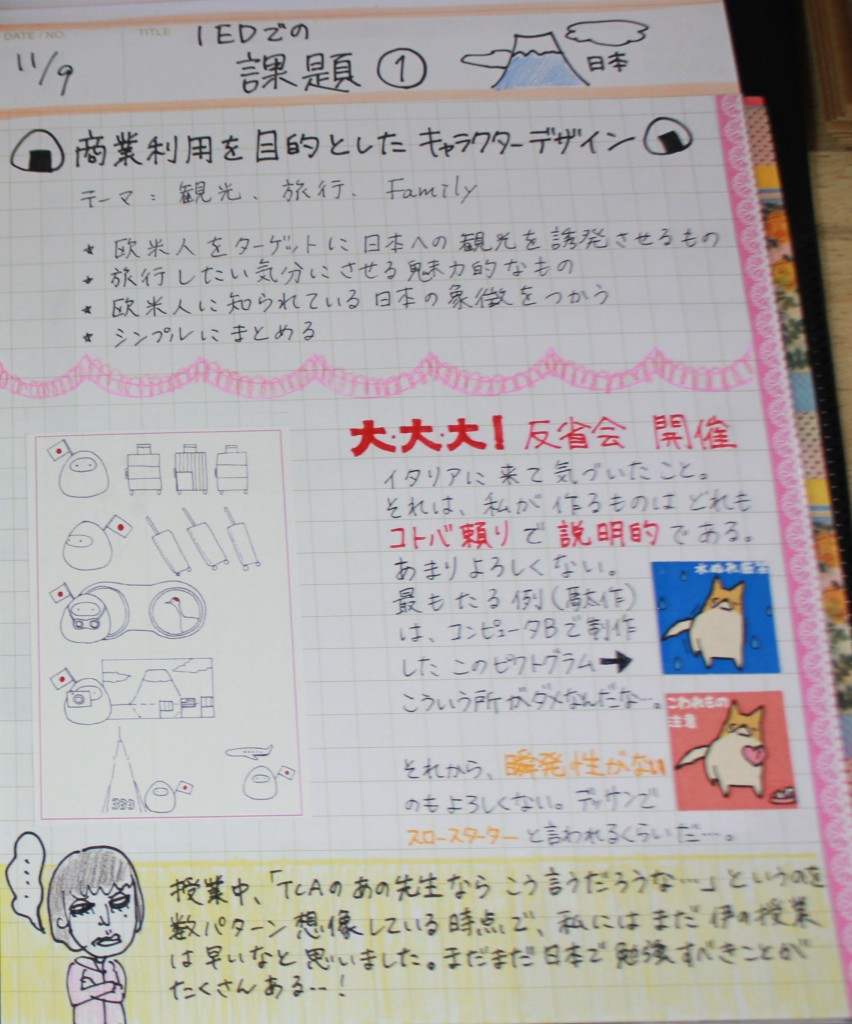 DATE / NO.
TITLE
11/9
IEDでの
課題 ①
日本
商業利用を目的としたキャラクターデザイン
テーマ：観光、旅行、Family
★ 欧米人をターゲットに日本への観光を誘発させるもの
★ 旅行したい気分にさせる魅力的なもの
★ 欧米人に知られている日本の象徴をつかう
★ シンプルにまとめる
大・大・大！反省会 開催
イタリアに来て気づいたこと。
それは、私が作るものはどれも
コトバ頼りで説明的である。
あまりよろしくない。
最もたる例（駄作）
は、コンピュータBで制作
したこのピクトグラム➡
こういう所がダメなんだな…。
水ぬれ厳禁
こわれもの
注意
それから、瞬発性がない
のもよろしくない。デッサンで
スロースターターと言われるくらいだ…。
授業中、「TCAのあの先生ならこう言うだろうな…」というのを
数パターン想像している時点で、私にはまだ伊の授業
は早いなと思いました。まだまだ日本で勉強すべきことが
たくさんある…！